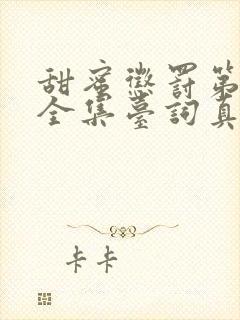 甜蜜懲罰第
全集臺詞真
卡卡